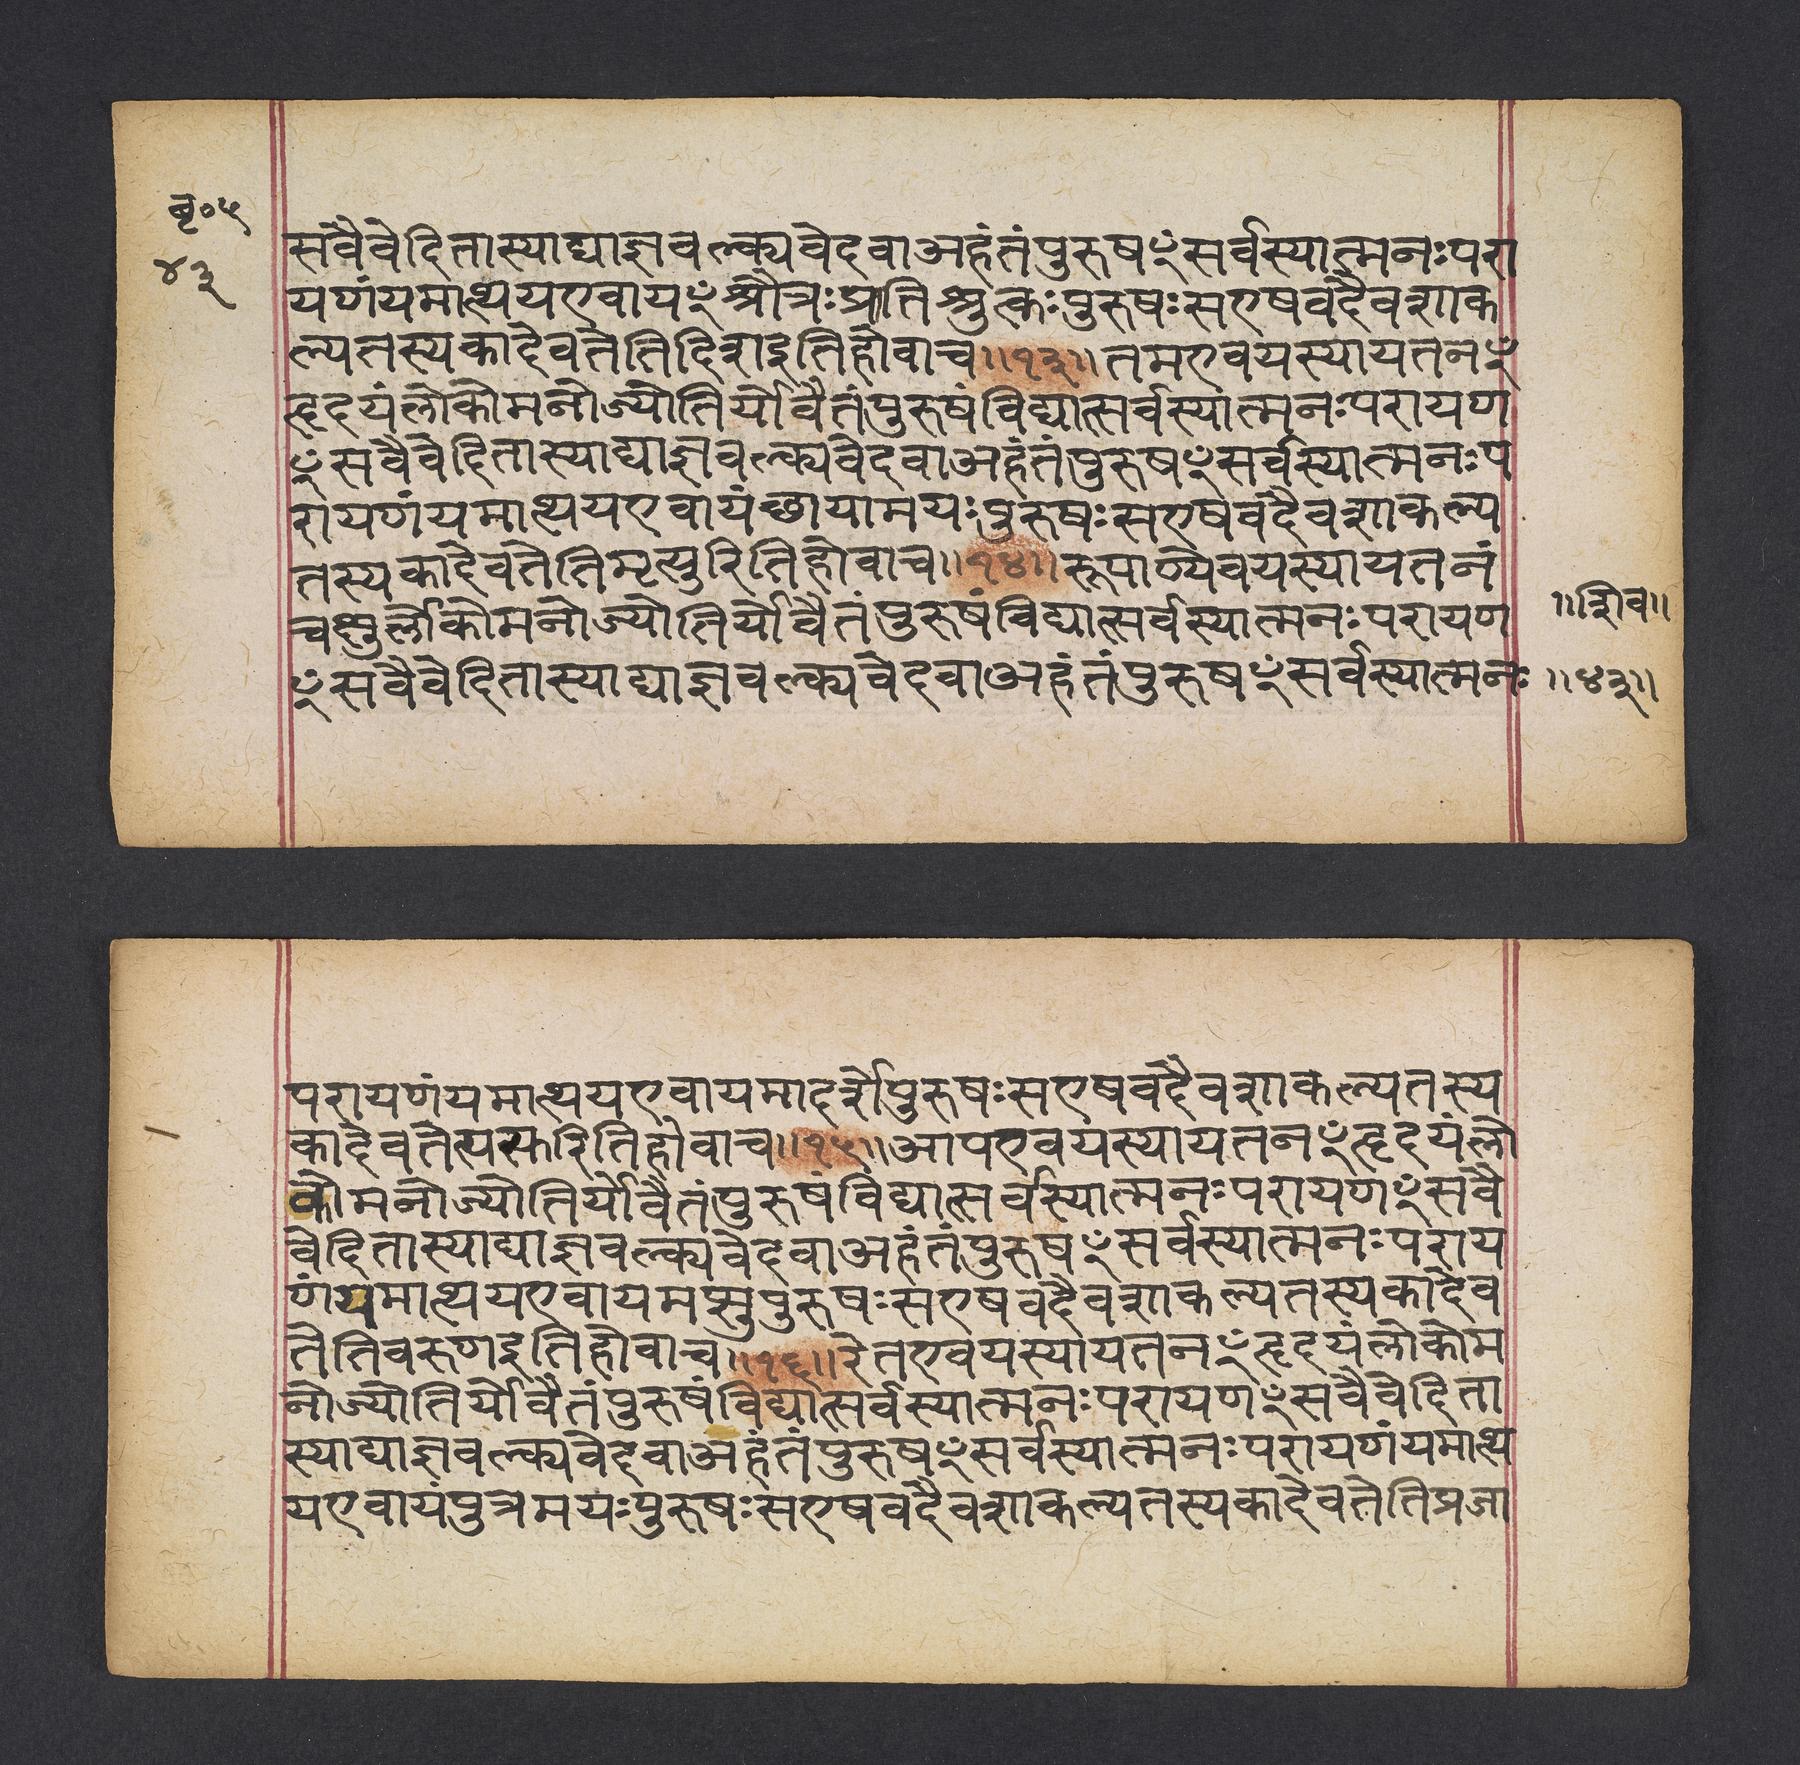 बृ०५
४३
सवैवेदितास्याद्याज्ञवल्क्यवेदवाअहंतंपुरुषꣳसर्वस्यात्मनःपरा
यणंयमात्थयएवायꣳश्रौत्रःप्रातिश्रुत्कःपुरुषःसएषवदैवशाक
ल्यतस्यकादेवतेतिदिशइतिहोवाच॥१३॥तमएवयस्यायतनꣳ
हृदयंलोकोमनोज्योतिर्योवैतंपुरुषंविद्यात्सर्वस्यात्मनःपरायण
ꣳसवैवेदितास्याद्याज्ञवल्क्यवेदवाअहंतंपुरुषꣳसर्वस्यात्मनःप
रायणंयमात्थयएवायंछायामयःपुरुषःसएषवदैवशाकल्य
तस्यकादेवतेतिमृत्युरितिहोवाच॥१४॥रूपाण्येवयस्यायतनं
चक्षुर्लोकोमनोज्योतिर्योवैतंपुरुषंविद्यात्सर्वस्यात्मनःपरायण
ꣳसवैवेदितास्याद्याज्ञवल्क्यवेदवाअहंतंपुरुषꣳसर्वस्यात्मनः
॥शिव॥
॥४३॥
परायणंयमात्थयएवायमादर्शेपुरुषःसएषवदैवशाकल्यतस्य
कादेवतेत्यसुरितिहोवाच॥१५॥आपएवयस्यायतनꣳहृदयंलो
कोमनोज्योतिर्योवैतंपुरुषंविद्यात्सर्वस्यात्मनःपरायणꣳसवै
वेदितास्याद्याज्ञवल्क्यवेदवाअहंतंपुरुषꣳसर्वस्यात्मनःपराय
णंयमात्थयएवायमप्सुपुरुषःसएषवदैवशाकल्यतस्यकादेव
तेतिवरुणइतिहोवाच॥१६॥रेतएवयस्यायतनꣳहृदयंलोकोम
नोज्योतिर्योवैतंपुरुषंविद्यात्सर्वस्यात्मनःपरायणꣳसवैवेदिता
स्याद्याज्ञवल्क्यवेदवाअहंतंपुरुषꣳसर्वस्यात्मनःपरायणंयमात्थ
यएवायंपुत्रमयःपुरुषःसएषवदैवशाकल्यतस्यकादेवतेतिप्रजा